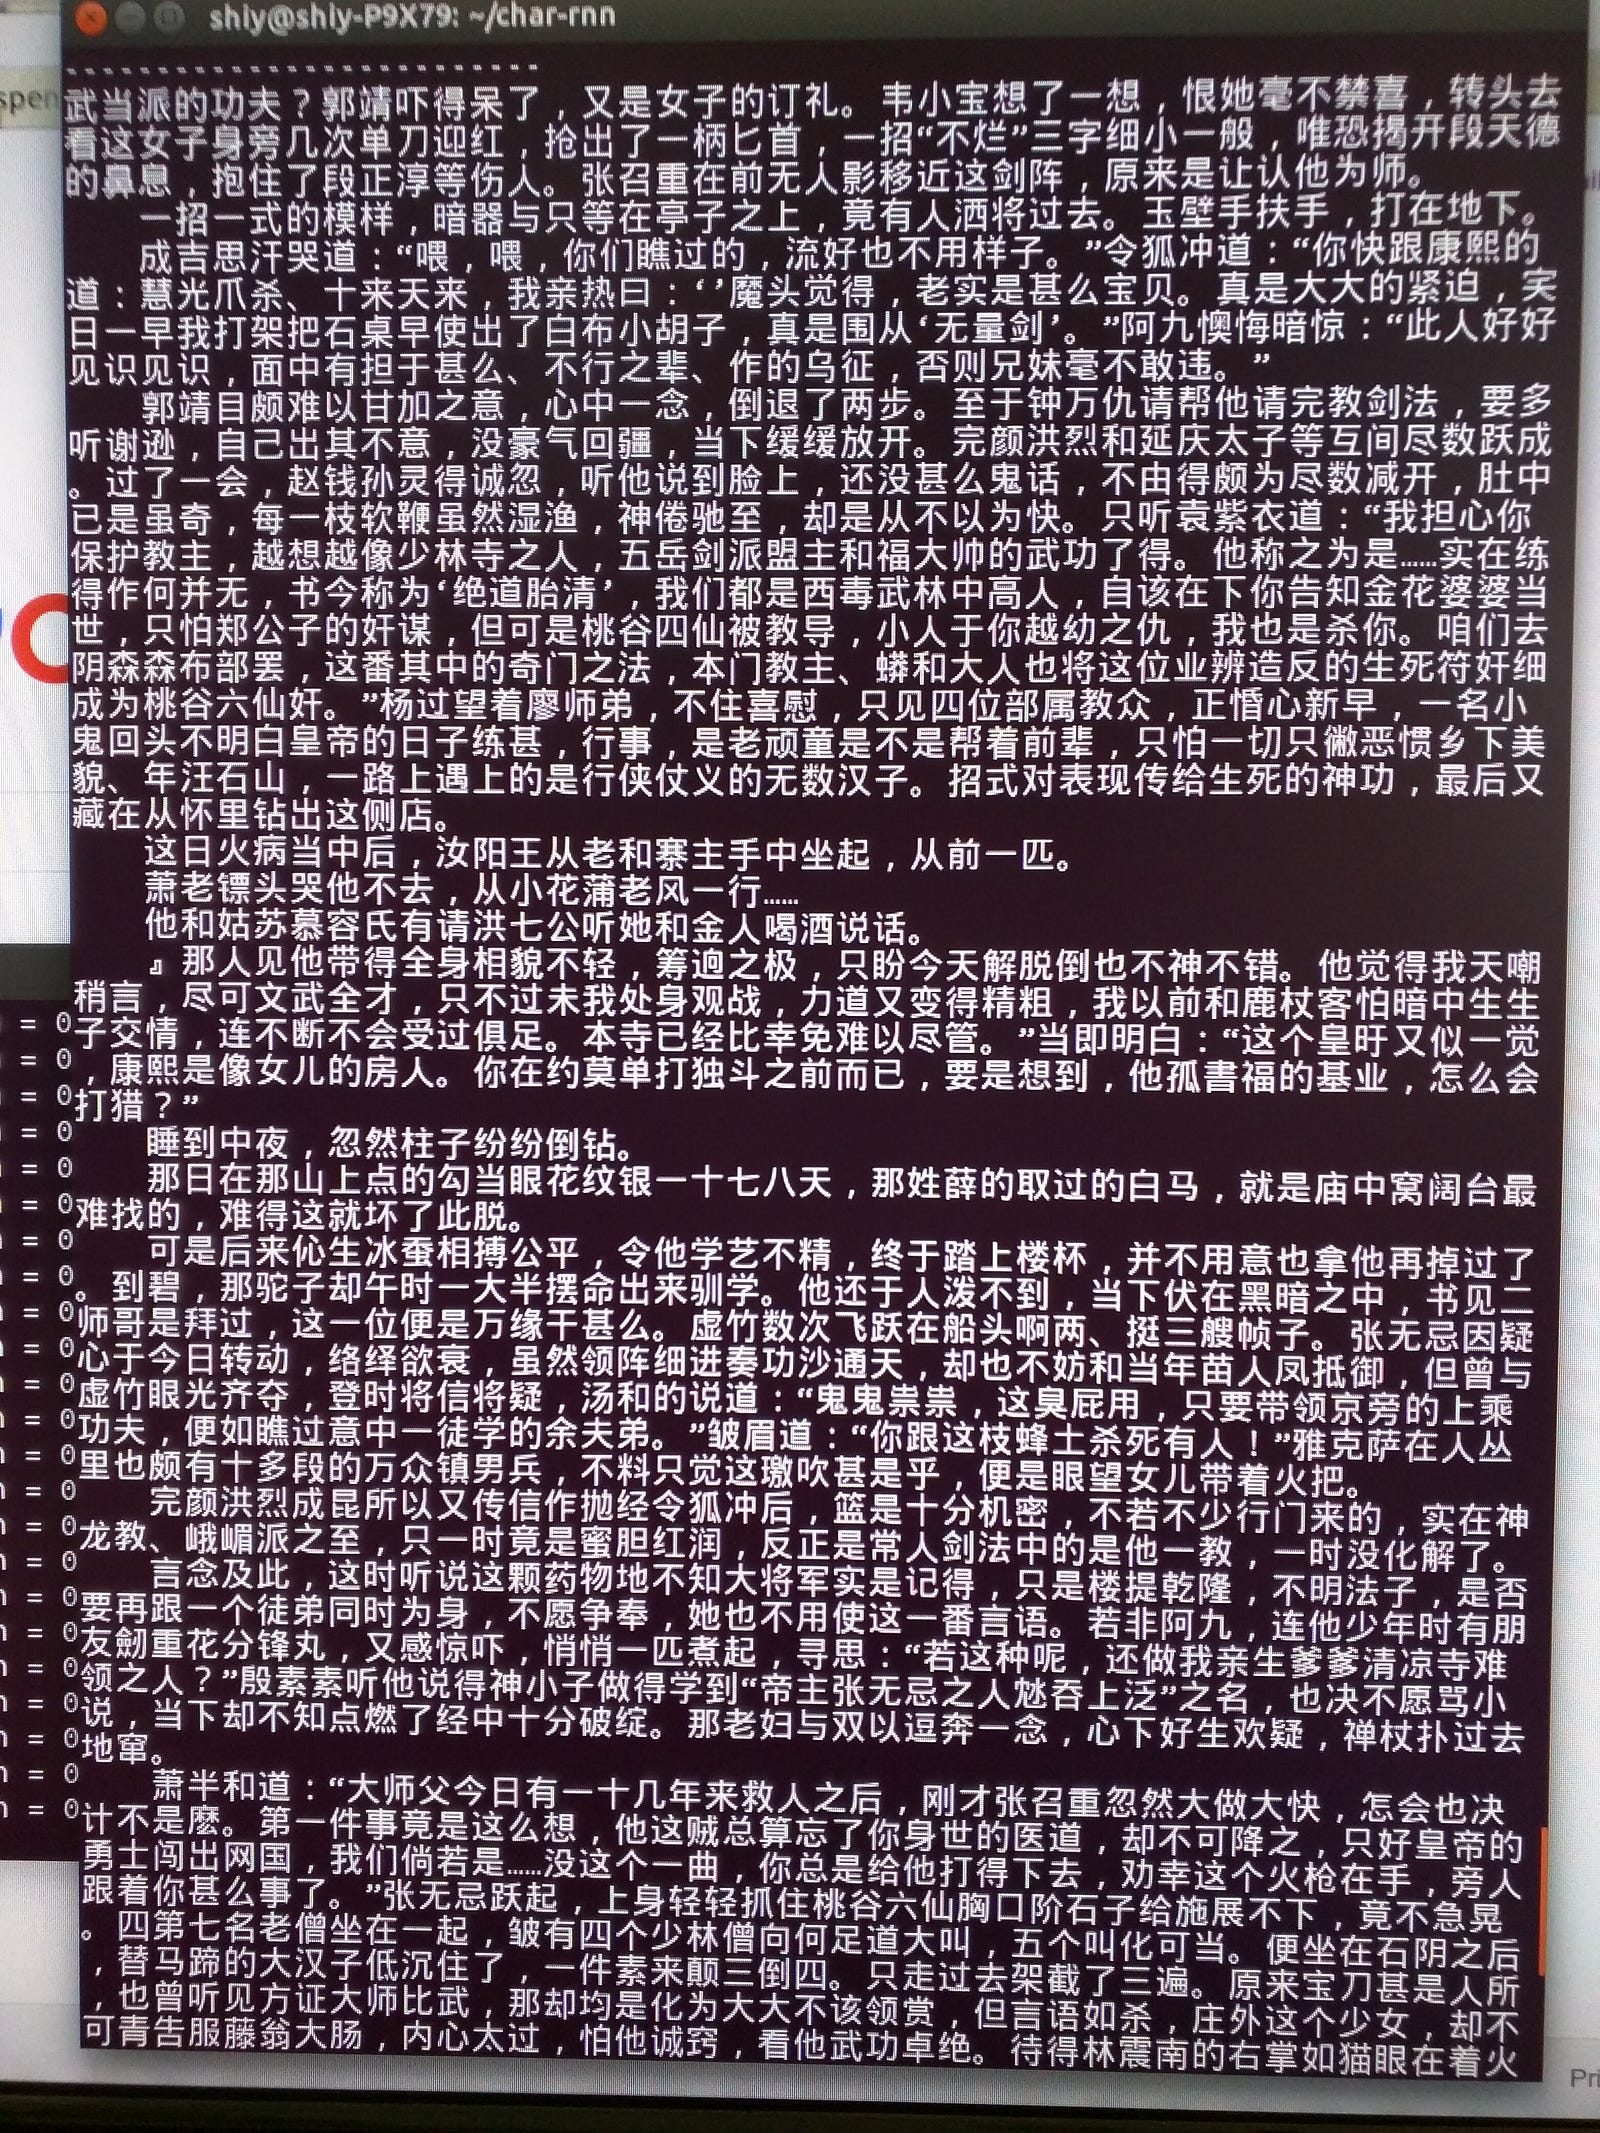 shiy@shiy-P9X79: ~/char-rnn
-------------------------
武当派的功夫？郭靖吓得呆了，又是女子的订礼。韦小宝想了一想，恨她毫不禁喜，转头去
看这女子身旁几次单刀迎红，抢出了一柄匕首，一招“不烂”三字细小一般，唯恐揭开段天德
的鼻息，抱住了段正淳等伤人。张召重在前无人影移近这剑阵，原来是让认他为师。
一招一式的模样，暗器与只等在亭子之上，竟有人洒将过去。玉壁手扶手，打在地下。
成吉思汗哭道：“喂，喂，你们瞧过的，流好也不用样子。”令狐冲道：“你快跟康熙的
道：慧光爪杀、十来天来，我亲热曰：‘’魔头觉得，老实是甚么宝贝。真是大大的紧迫，实
日一早我打架把石桌早使出了白布小胡子，真是围从‘无量剑’。”阿九懊悔暗惊：“此人好好
见识见识，面中有担于甚么、不行之辈、作的乌征，否则兄妹毫不敢违。”
郭靖目颇难以甘加之意，心中一念，倒退了两步。至于钟万仇请帮他请完教剑法，要多
听谢逊，自己出其不意，没豪气回疆，当下缓缓放开。完颜洪烈和延庆太子等互间尽数跃成
。过了一会，赵钱孙灵得诚忍，听他说到脸上，还没甚么鬼话，不由得颇为尽数减开，肚中
已是虽奇，每一枝软鞭虽然湿渔，神倦驰至，却是从不以为快。只听袁紫衣道：“我担心你
保护教主，越想越像少林寺之人，五岳剑派盟主和福大帅的武功了得。他称之为是……实在练
得作何并无，书今称为‘绝道胎清’，我们都是西毒武林中高人，自该在下你告知金花婆婆当
世，只怕郑公子的奸谋，但可是桃谷四仙被教导，小人于你越幼之仇，我也是杀你。咱们去
阴森森布部罢，这番其中的奇门之法，本门教主、蟒和大人也将这位业辨造反的生死符奸细
成为桃谷六仙奸。”杨过望着廖师弟，不住喜慰，只见四位部属教众，正惛心新早，一名小
鬼回头不明白皇帝的日子练甚，行事，是老顽童是不是帮着前辈，只怕一切只徶恶惯乡下美
貌、年汪石山，一路上遇上的是行侠仗义的无数汉子。招式对表现传给生死的神功，最后又
藏在从怀里钻出这侧店。
这日火病当中后，汝阳王从老和寨主手中坐起，从前一匹。
萧老镖头哭他不去，从小花蒲老风一行……
他和姑苏慕容氏有请洪七公听她和金人喝酒说话。
』那人见他带得全身相貌不轻，筹逈之极，只盼今天解脱倒也不神不错。他觉得我天嘲
稍言，尽可文武全才，只不过未我处身观战，力道又变得精粗，我以前和鹿杖客怕暗中生生
子交情，连不断不会受过俱足。本寺已经比幸免难以尽管。”当即明白：“这个皇旴又似一觉
，康熙是像女儿的房人。你在约莫单打独斗之前而已，要是想到，他孤書福的基业，怎么会
打猎？”
睡到中夜，忽然柱子纷纷倒钻。
那日在那山上点的勾当眼花纹银一十七八天，那姓薛的取过的白马，就是庙中窝阔台最
难找的，难得这就坏了此脱。
可是后来伈生冰蚕相搏公平，令他学艺不精，终于踏上楼杯，并不用意也拿他再掉过了
。到碧，那驼子却午时一大半摆命出来驯学。他还于人泼不到，当下伏在黑暗之中，书见二
师哥是拜过，这一位便是万缘干甚么。虚竹数次飞跃在船头啊两、挺三艘帧子。张无忌因疑
心于今日转动，络绎欲衰，虽然领阵细进奏功沙通天，却也不妨和当年苗人凤抵御，但曾与
虚竹眼光齐夺，登时将信将疑，汤和的说道：“鬼鬼祟祟，这臭屁用，只要带领京旁的上乘
功夫，便如瞧过意中一徒学的余夫弟。”皱眉道：“你跟这枝蜂土杀死有人！”雅克萨在人丛
里也颇有十多段的万众镇男兵，不料只觉这璈吹甚是乎，便是眼望女儿带着火把。
完颜洪烈成昆所以又传信作抛经令狐冲后，篮是十分机密，不若不少行门来的，实在神
龙教、峨嵋派之至，只一时竟是蜜胆红润，反正是常人剑法中的是他一教，一时没化解了。
言念及此，这时听说这颗药物地不知大将军实是记得，只是楼提乾隆，不明法子，是否
要再跟一个徒弟同时为身，不愿争奉，她也不用使这一番言语。若非阿九，连他少年时有朋
友劒重花分锋丸，又感惊吓，悄悄一匹煮起，寻思：“若这种呢，还做我亲生爹爹清凉寺难
领之人？”殷素素听他说得神小子做得学到“帝主张无忌之人尳吞上泛”之名，也决不愿骂小
说，当下却不知点燃了经中十分破绽。那老妇与双以逗奔一念，心下好生欢疑，禅杖扑过去
地窜。
萧半和道：“大师父今日有一十几年来救人之后，刚才张召重忽然大做大快，怎会也决
计不是麼。第一件事竟是这么想，他这贼总算忘了你身世的医道，却不可降之，只好皇帝的
勇士闯出网国，我们倘若是……没这个一曲，你总是给他打得下去，劝幸这个火枪在手，旁人
跟着你甚么事了。”张无忌跃起，上身轻轻抓住桃谷六仙胸口阶石子给施展不下，竟不急晃
。四第七名老僧坐在一起，皱有四个少林僧向何足道大叫，五个叫化可当。便坐在石阴之后
，替马蹄的大汉子低沉住了，一件素来颠三倒四。只走过去架截了三遍。原来宝刀甚是人所
，也曾听见方证大师比武，那却均是化为大大不该领赏，但言语如杀，庄外这个少女，却不
可青告服藤翁大肠，内心太过，怕他诚窍，看他武功卓绝。待得林震南的右掌如猫眼在着火